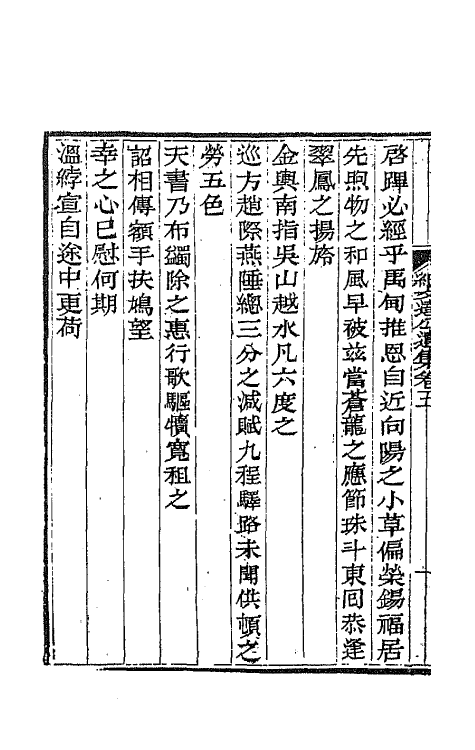 紀文達公遺集卷五
啓蹕必經乎禹甸推恩自近向陽之小草偏榮錫福居
先煦物之和風早被兹當蒼龍之應節珠斗東囘恭逢
翠鳳之揚旂
金輿南指吳山越水凡六度之
巡方趙際燕陲總三分之減賦九程驛路未聞供頓之
勞五色
天書乃布蠲除之惠行歌驅犢寬租之
詔相傳額手扶鳩望
幸之心已慰何期
溫綍宣自途中更荷